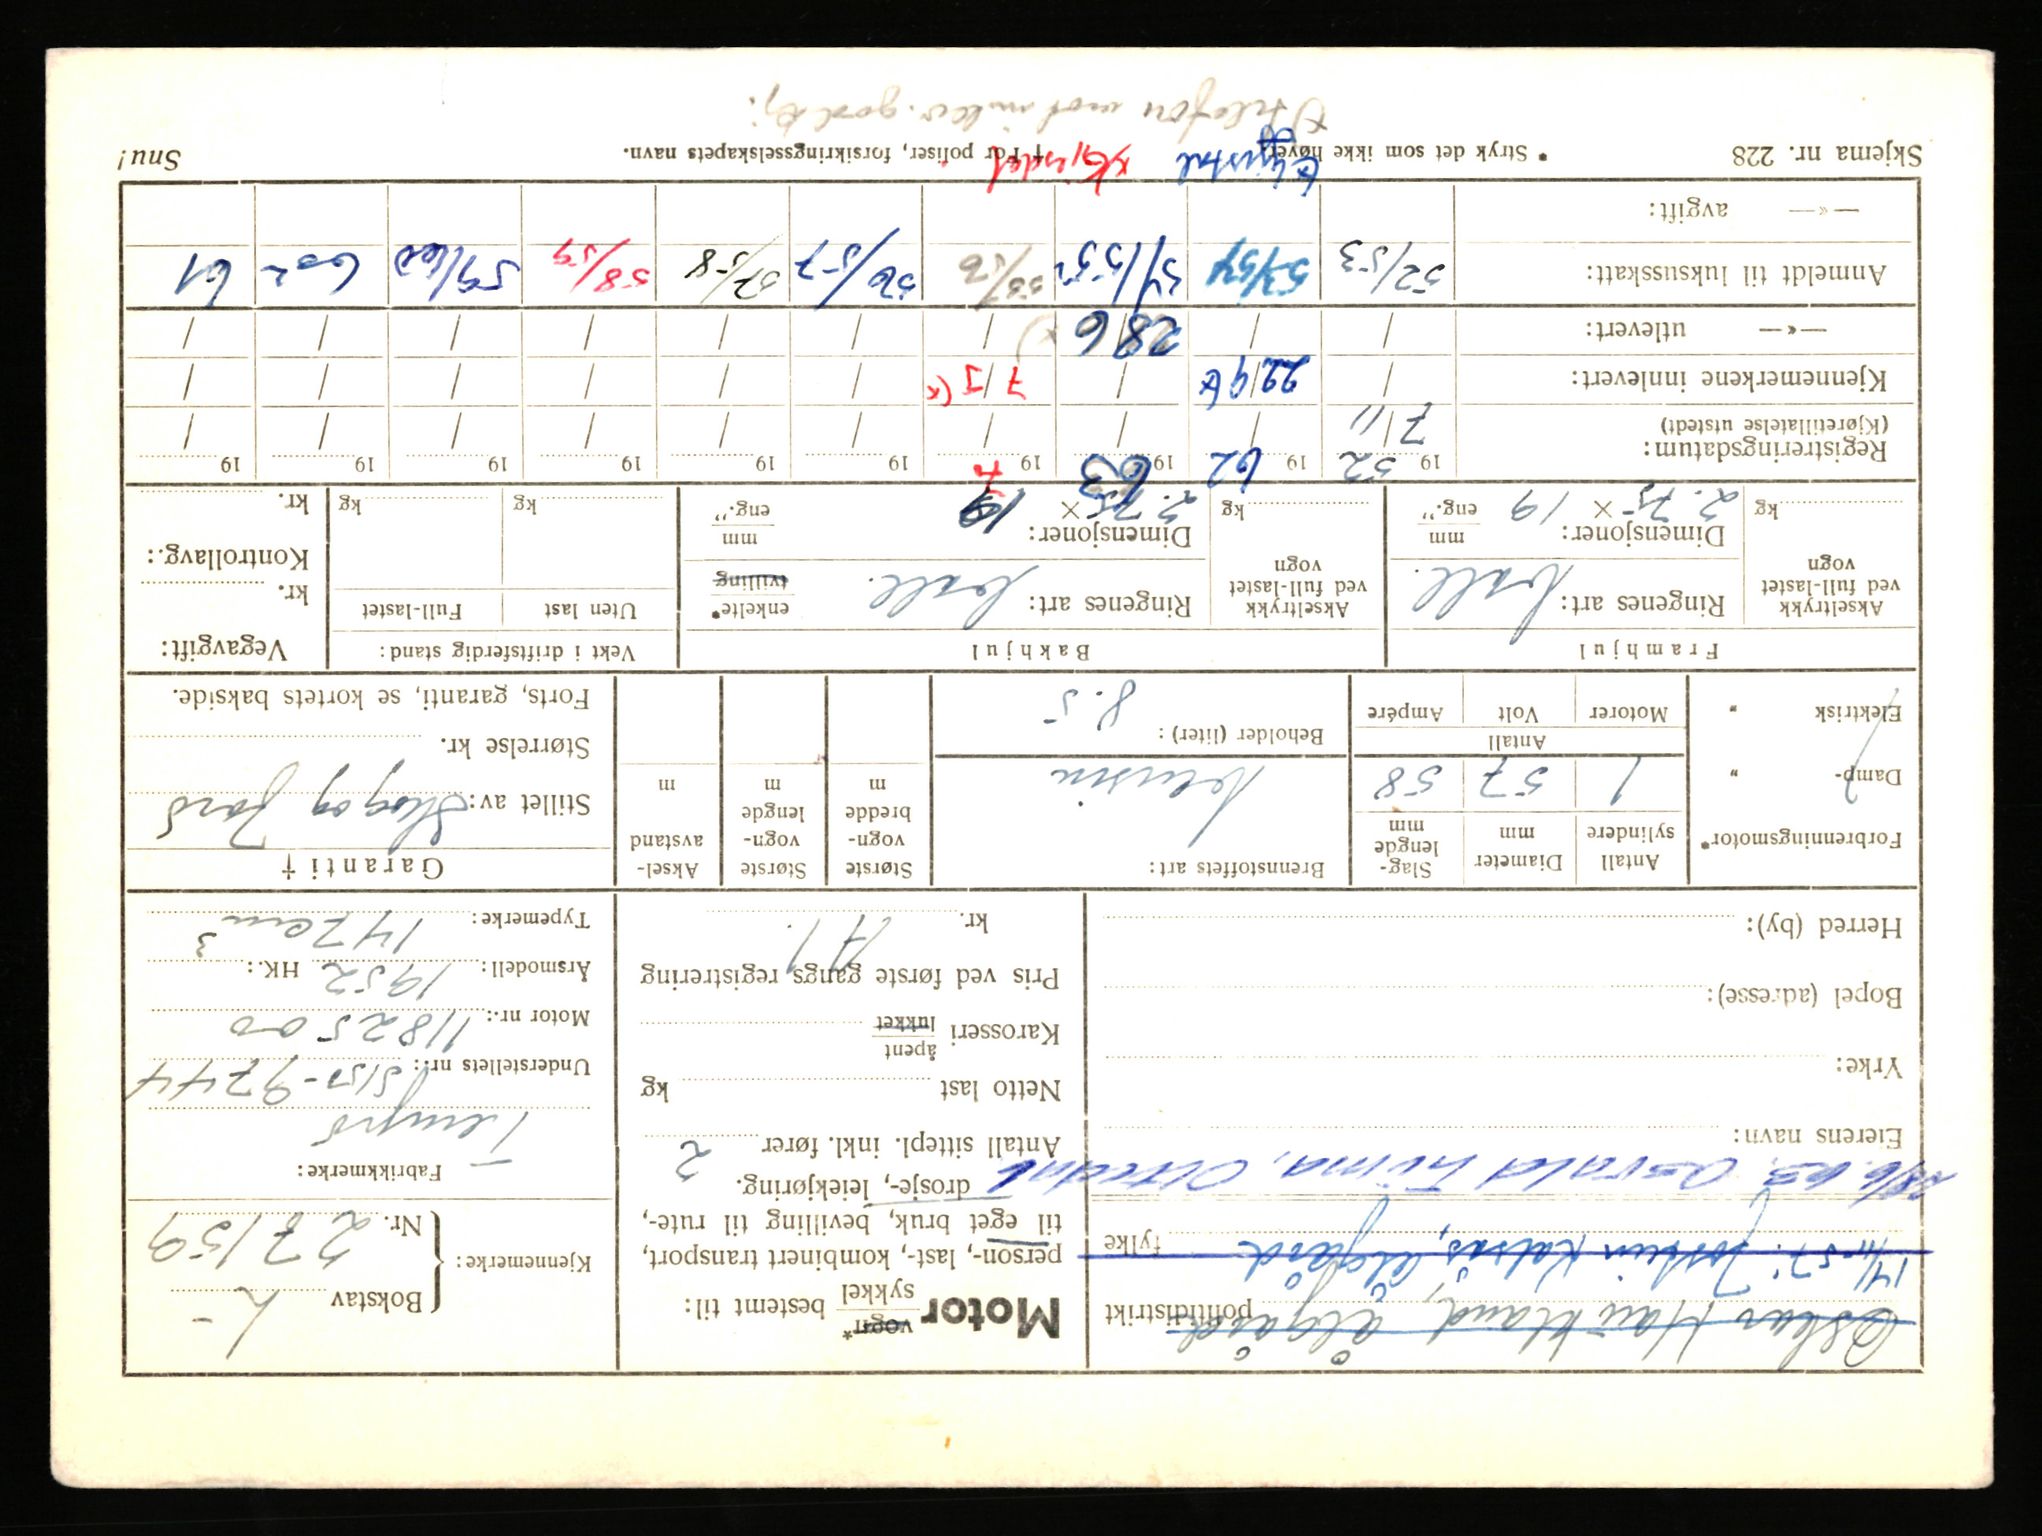 Motor vogn* sykkel bestemt til:
person-, last-, kombinert transport,
til eget bruk, bevilling til rute-,
drosje-, leiekjøring.
Antall sittepl. inkl. fører 2
Netto last kg
Karosseri åpent lukket
Pris ved første gangs registrering
kr.
Oskar Haukland, Ålgård
politidistrikt
14/11-57: Jostein Kalsås, Ålgård
fylke
28/6.63. Osvald Lima, Oltedal
Eierens navn:
Yrke:
Bopel (adresse):
Herred (by):
Kjennemerke: Bokstav L-
Nr. 27159
Fabrikkmerke:
Tempo
Understellets nr.: S151-9744
Motor nr.: 1182500
Årsmodell: 1952 HK.:
Typemerke: 147 cm3
Forbrenningsmotor*
Damp- "
Elektrisk "
Antall sylindere 1
Diameter mm 57
Slag-lengde mm 58
Antall
Motorer Volt Ampére
Brennstoffets art:
bensin
Beholder (liter):
8.5
Største vogn-bredde m
Største vogn-lengde m
Aksel-avstand m
Garanti †
Stillet av: Skog og Jord
Størrelse kr.
Forts, garanti, se kortets bakside.
Framhjul
Akseltrykk ved full-lastet vogn kg
Ringenes art:
Dimensjoner: 2.75 × 19 mm eng."
Bakhjul
Akseltrykk ved full-lastet vogn kg
Ringenes art: enkelte* tvilling
Dimensjoner: 2.75 × 19 mm eng."
Vekt i driftsferdig stand:
Uten last Full-lastet
kg kg
Vegavgift:
kr.
Kontrollavg.:
kr.
Registreringsdatum:
(Kjøretillatelse utstedt)
19 52 19 62 19 63 19 19 19 19 19 19 19
7/11 / / / / / / / / /
Kjennemerkene innlevert: / 22/9 / 7/1 x) / / / / / /
—«— utlevert: / / 28/6 / / / / / / /
Anmeldt til luksusskatt: 52/53 53/54 54/55 55/56 56/57 57/58 58/59 59/60 60² 61
—«— avgift:
Skjema nr. 228
* Stryk det som ikke høver.
† For poliser, forsikringsselskapets navn.
Snu!